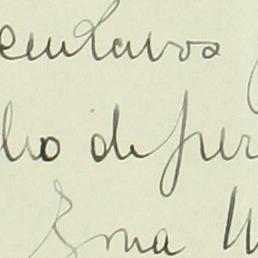 centavos
lho de fer
Ema